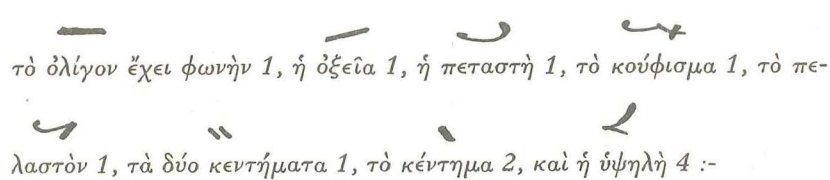 τὸ ὀλίγον ἔχει φωνὴν 1, ἡ ὀξεῖα 1, ἡ πεταστὴ 1, τὸ κούφισμα 1, τὸ πε-
λαστὸν 1, τὰ δύο κεντήματα 1, τὸ κέντημα 2, καὶ ἡ ὑψηλὴ 4 :-